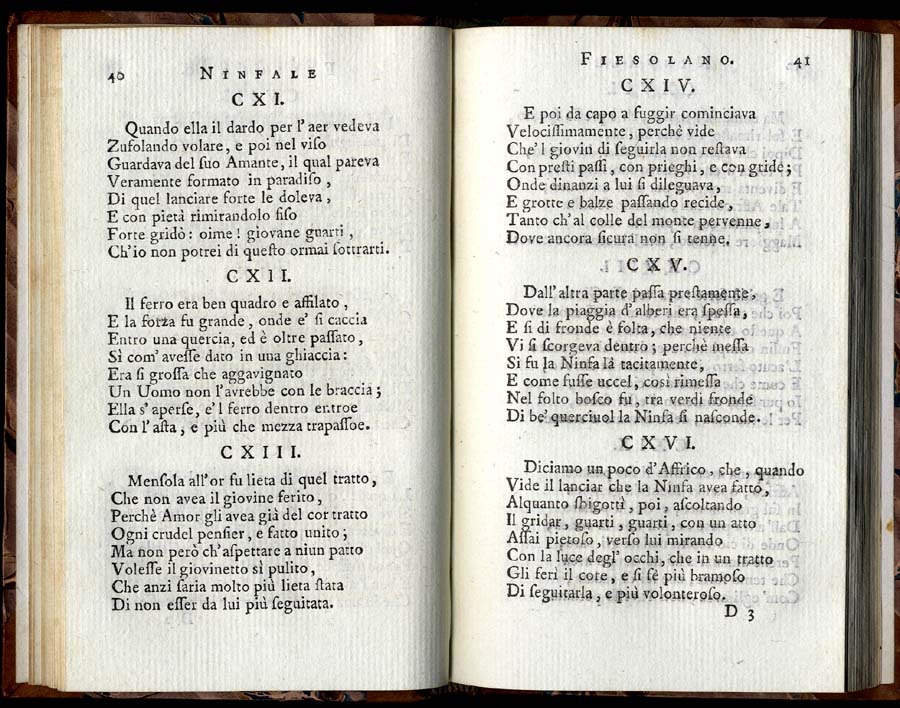 40 NINFALE
CXI.
Quando ella il dardo per l'aer vedeva
Zufolando volare, e poi nel viſo
Guardava del ſuo Amante, il qual pareva
Veramente formato in paradiſo,
Di quel lanciare forte le doleva,
E con pietà rimirandolo fiſo
Forte gridò: oime! giovane guarti,
Ch'io non potrei di queſto ormai ſottrarti.
CXII.
Il ferro era ben quadro e affilato,
E la forza fu grande, onde e' ſi caccia
Entro una quercia, ed è oltre paſſato,
Sì com' aveſſe dato in una ghiaccia:
Era ſi groſſa che aggavignato
Un Uomo non l'avrebbe con le braccia;
Ella s'aperſe, e'l ferro dentro entroe
Con l'aſta, e più che mezza trapaſſoe.
CXIII.
Menſola all'or fu lieta di quel tratto,
Che non avea il giovine ferito,
Perchè Amor gli avea già del cor tratto
Ogni crudel penſier, e fatto unito;
Ma non però ch'aſpettare a niun patto
Voleſſe il giovinetto sì pulito,
Che anzi ſaria molto più lieta ſtata
Di non eſſer da lui più ſeguitata.
FIESOLANO. 41
CXIV.
E poi da capo a fuggir cominciava
Velociſſimamente, perchè vide
Che'l giovin di ſeguirla non reſtava
Con preſti paſſi, con prieghi, e con gride;
Onde dinanzi a lui ſi dileguava,
E grotte e balze paſſando recide,
Tanto ch'al colle del monte pervenne,
Dove ancora ſicura non ſi tenne.
CXV.
Dall'altra parte paſſa preſtamente,
Dove la piaggia d'alberi era ſpeſſa,
E ſi di fronde è folta, che niente
Vi ſi ſcorgeva dentro; perchè meſſa
Si fu la Ninfa là tacitamente,
E come fuſſe uccel, così rimeſſa
Nel folto boſco fu, tra verdi fronde
Di be' querciuol la Ninfa ſi naſconde.
CXVI.
Diciamo un poco d'Affrico, che, quando
Vide il lanciar che la Ninfa avea fatto,
Alquanto ſbigottì, poi, aſcoltando
Il gridar, guarti, guarti, con un atto
Aſſai pietoſo, verſo lui mirando
Con la luce degl' occhi, che in un tratto
Gli feri il core, e ſi fè più bramoſo
Di ſeguitarla, e più volonteroſo.
D 3